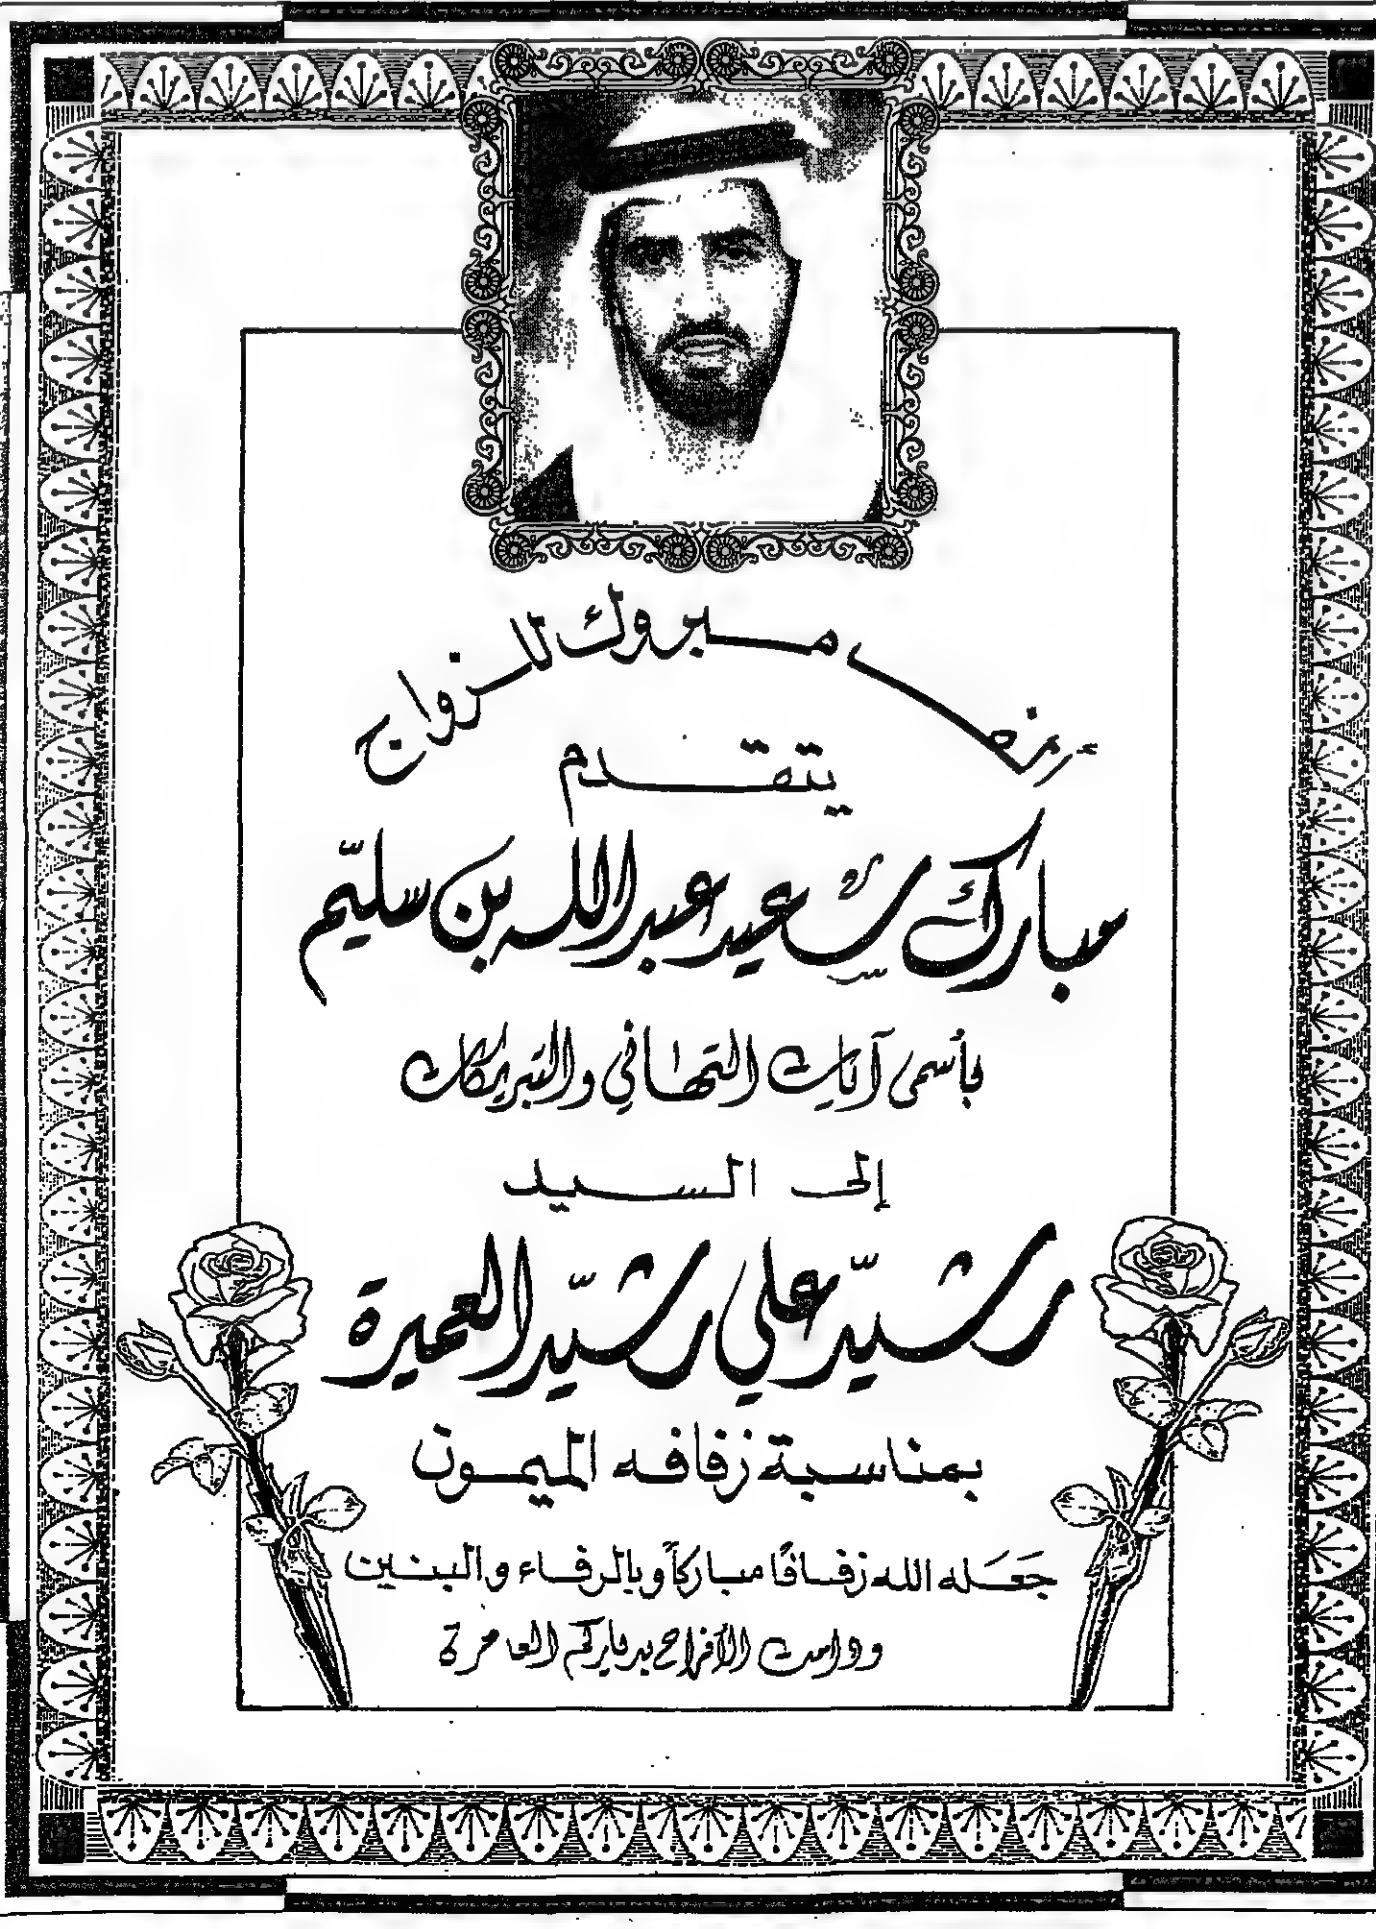 مبروك للزواج
يتقدم
مبارك سعيد عبدالله بن سليّم
بأسمى آيات التهاني والتبريكات
إلى السيد
رشيّد علي رشيّد العميرة
بمناسبة زفافه الميمون
جَعَله الله زفافًا مباركاً وبالرفاء والبنين
ودامت الأفراح بدياركم العامرة